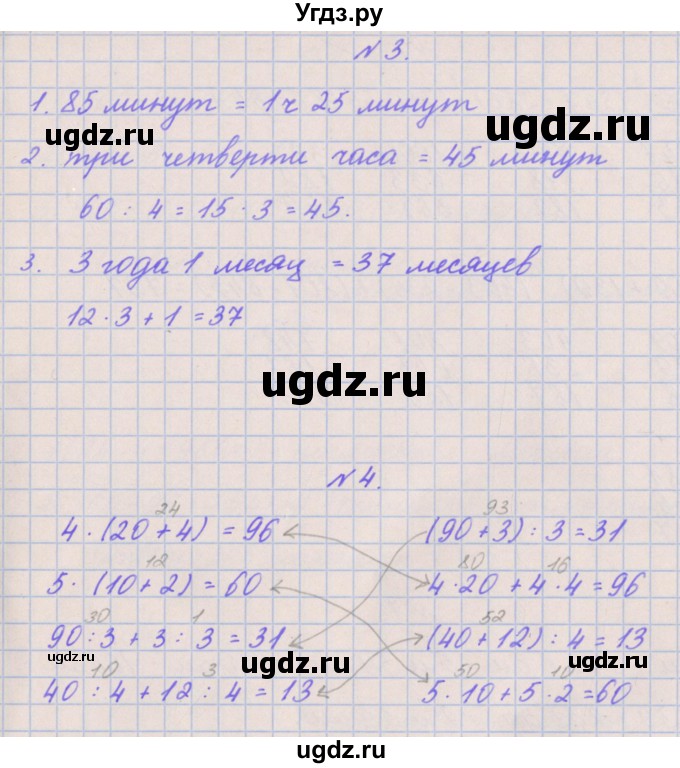 Угдз.ру
N 3.
1. 85 минут = 1 ч 25 минут
ugdz.ru
ugdz.ru
2. три четверти часа = 45 минут
60 : 4 = 15 · 3 = 45.
3. 3 года 1 месяц = 37 месяцев
12 · 3 + 1 = 37
ugdz.ru
N 4.
24
4 · (20 + 4) = 96
93
(90 + 3) : 3 = 31
12
5 · (10 + 2) = 60
80 16
4 · 20 + 4 · 4 = 96
30 1
90 : 3 + 3 : 3 = 31
52
(40 + 12) : 4 = 13
ugdz.ru
ugdz.ru
ugdz.ru
10 3
40 : 4 + 12 : 4 = 13
50 10
5 · 10 + 5 · 2 = 60
ugdz.ru